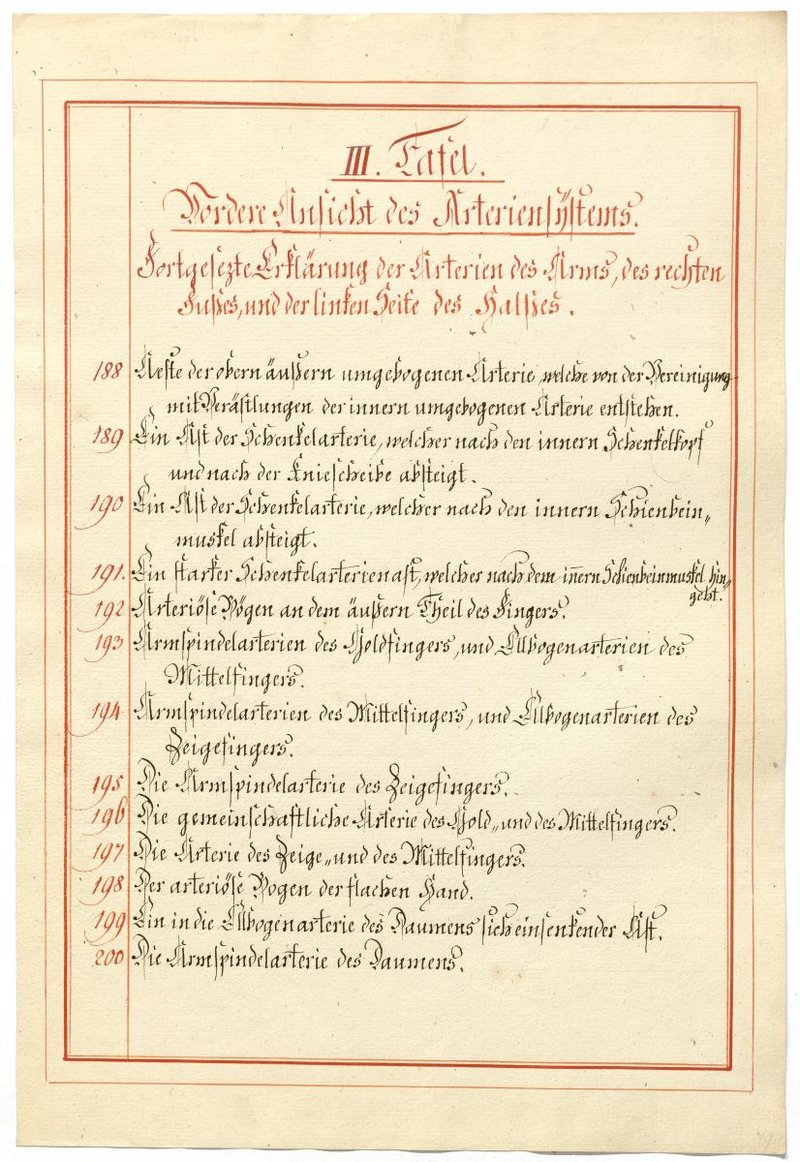 III. Tafel.
Vordere Ansicht des Arteriensÿstems.
Fortgesezte Erklärung der Arterien des Arms, des rechten
Fußes, und der linken Seite des Halßes.
188 Aeste der obern äußern umgebogenen Arterie, welche von der Vereinigung
mit Verästlungen der innern umgebogenen Arterie entstehen.
189 Ein Ast der Schenkelarterie, welcher nach den innern Schenkelkopf
und nach der Kniescheibe absteigt.
190 Ein Ast der Schenkelarterie, welcher nach den innern Schienbein„
muskel absteigt.
191. Ein starker Schenkelarterienast, welcher nach dem innern Schienbeinmuskel hin„
geht.
192 Arteriöse Bögen an dem äußern Theil des Fingers.
193 Armspindelarterien des Goldfingers, und Ellbogenarterien des
Mittelfingers.
194 Armspindelarterien des Mittelfingers, und Ellbogenarterien des
Zeigefingers.
195 Die Armspindelarterie des Zeigefingers.
196 Die gemeinschaftliche Arterie des Gold„ und des Mittelfingers.
197 Die Arterie des Zeige„ und des Mittelfingers.
198 Der arteriöse Bogen der flachen Hand.
199 Ein in die Ellbogenarterie des Daumens sich einsenkender Ast.
200 Die Armspindelarterie des Daumens.